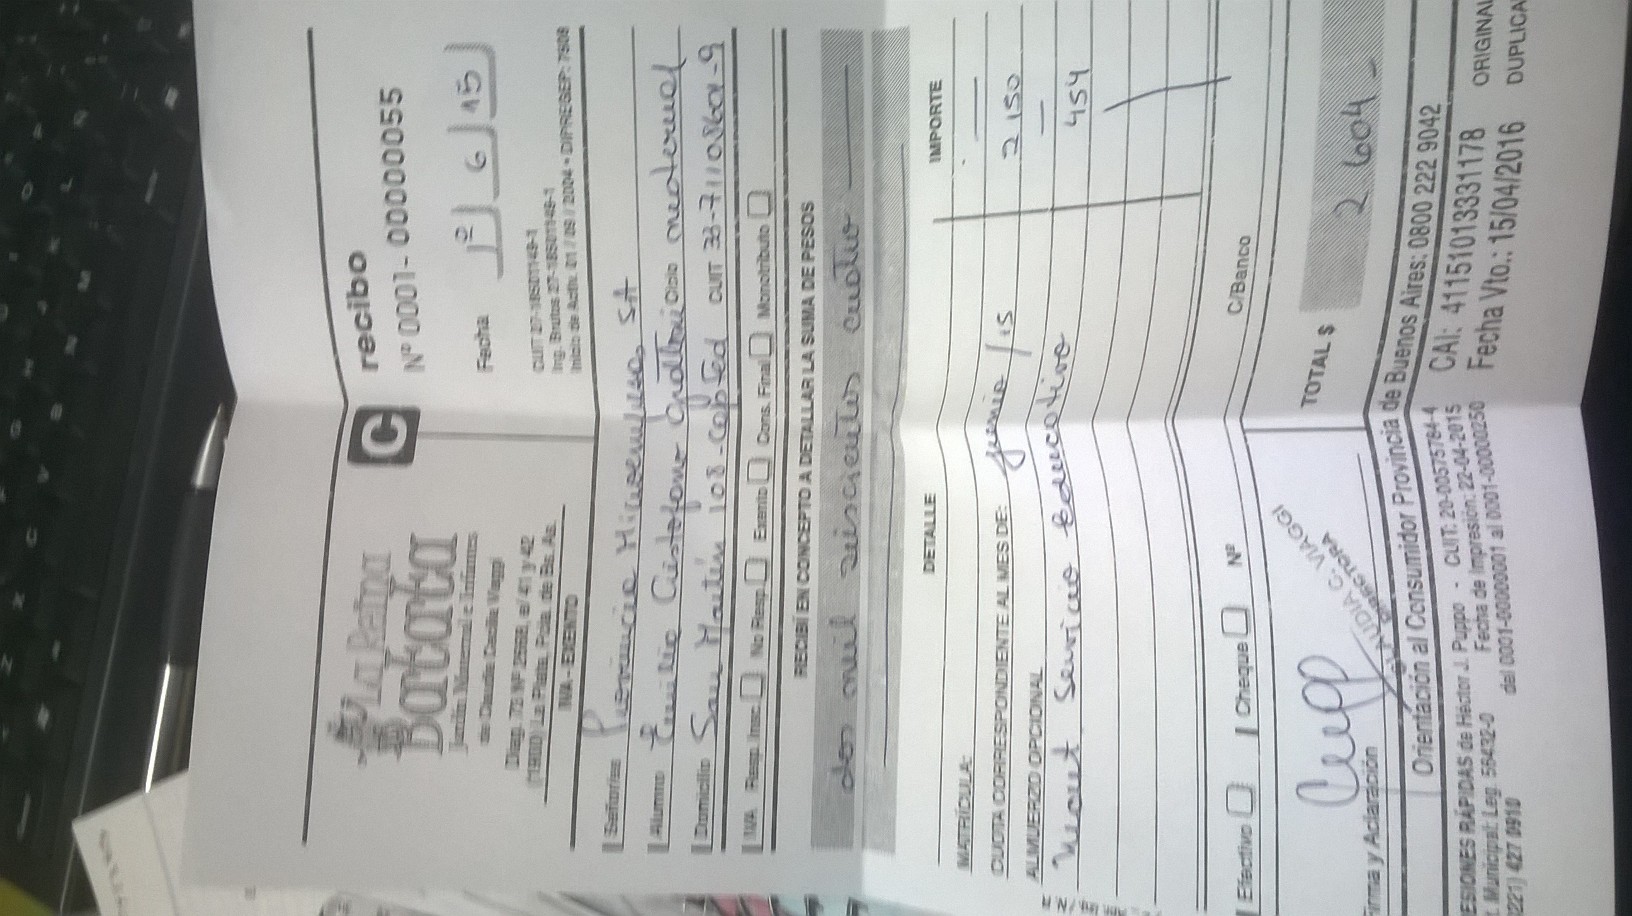 La Patita
Batata
Jardín Maternal e Infantes
de Claudia Cecilia Viaggi
Diag. 73 Nº 2568, e/ 41 y 42
(1900) La Plata, Pcia. de Bs. As.
IVA - EXENTO
C
recibo
Nº 0001- 00000055
Fecha 1º 6 15
CUIT 27-18501149-1
Ing. Brutos 27-18501149-1
Inicio de Activ. 01 / 09 / 2004 • DIPREGEP: 7508
Señor/es SA
Alumno Emilio Ciclo maternal
Domicilio San Martín 108 - CUIT 33-71108601-9
IVA Resp. Insc. No Resp. Exento Cons. Final Monotributo
RECIBÍ EN CONCEPTO A DETALLAR LA SUMA DE PESOS
dos mil seiscientos cuatro
DETALLE IMPORTE
MATRÍCULA: —
CUOTA CORRESPONDIENTE AL MES DE: junio / 15 2 150
ALMUERZO OPCIONAL —
Servicio Educativo 454
Efectivo Cheque Nº C/Banco
TOTAL $ 2 604 -
Firma y Aclaración
CLAUDIA C. VIAGGI
DIRECTORA
Orientación al Consumidor Provincia de Buenos Aires: 0800 222 9042
ESIONES RÁPIDAS de Héctor J. Puppo - CUIT: 20-00575784-4
. Municipal: Leg. 56432-0 Fecha de Impresión: 22-04-2015
221) 427 0910 del 0001-00000001 al 0001-00000250
CAI: 41151013331178
Fecha Vto.: 15/04/2016
ORIGINAL
DUPLICA